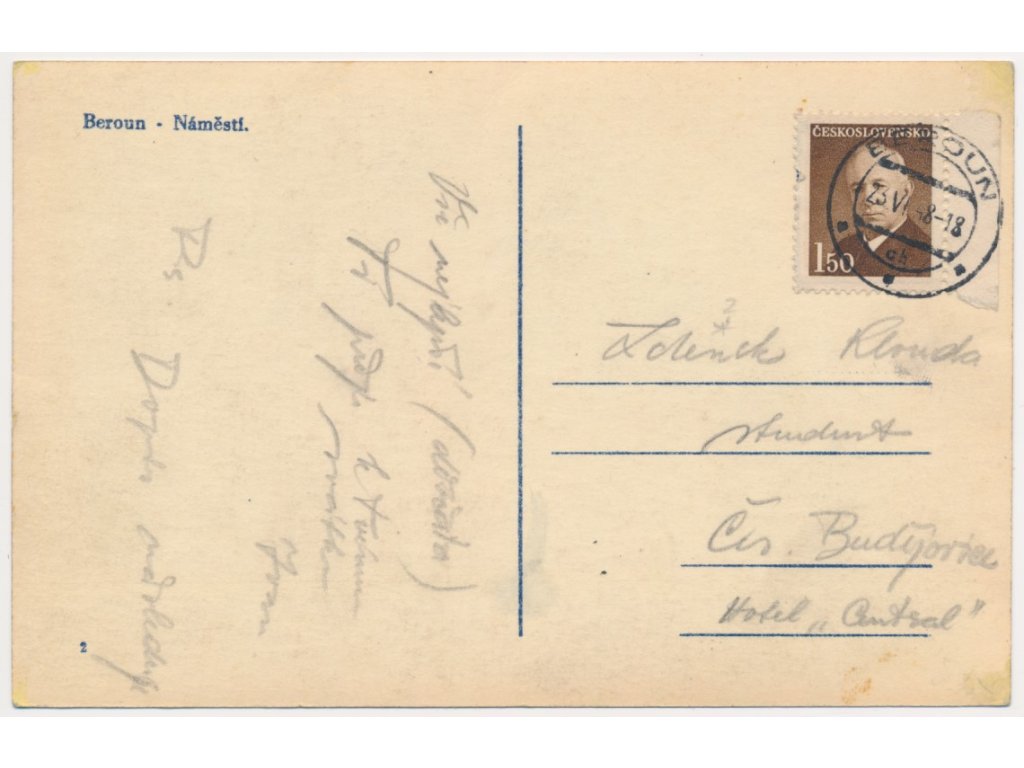 Beroun - Náměstí.
ČESKOSLOVENSKO
150
BEROUN
23.VI.48-18
Vše nejlepší (děvčata)
Ti přeje k tvému
svátku
Ivan
Ps. Dopis následuje
Zdeněk Klouda
student
Čes. Budějovice
Hotel „Central"
2